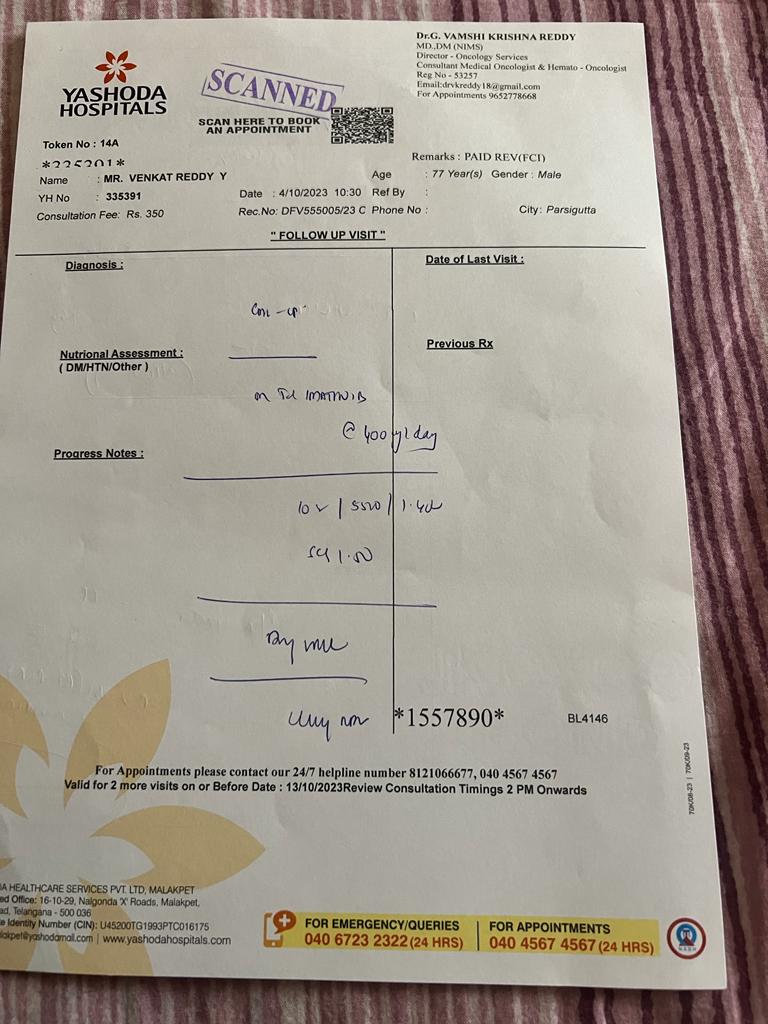 Dr.G. VAMSHI KRISHNA REDDY
MD.,DM (NIMS)
Director - Oncology Services
Consultant Medical Oncologist & Hemato - Oncologist
Reg No - 53257
Email:drvkreddy18@gmail.com
For Appointments 9652778668
YASHODA
HOSPITALS
SCANNED
SCAN HERE TO BOOK
AN APPOINTMENT
Token No : 14A
Remarks : PAID REV(FCI)
Name : MR. VENKAT REDDY Y
Age : 77 Year(s) Gender : Male
YH No : 335391
Date : 4/10/2023 10:30 Ref By :
Consultation Fee: Rs. 350
Rec.No: DFV555005/23 C Phone No :
City: Parsigutta
" FOLLOW UP VISIT "
Diagnosis :
Date of Last Visit :
CML - CP
Previous Rx
Nutrional Assessment :
( DM/HTN/Other )
IMATINIB
@ 400 day
Progress Notes :
1.50
*1557890*
BL4146
70K/08-23 | 70K/09-23
For Appointments please contact our 24/7 helpline number 8121066677, 040 4567 4567
Valid for 2 more visits on or Before Date : 13/10/2023Review Consultation Timings 2 PM Onwards
A HEALTHCARE SERVICES PVT. LTD, MALAKPET
ed Office: 16-10-29, Nalgonda 'X' Roads, Malakpet,
ad, Telangana - 500 036
e Identity Number (CIN): U45200TG1993PTC016175
lakpet@yashodamail.com | www.yashodahospitals.com
FOR EMERGENCY/QUERIES
040 6723 2322 (24 HRS)
FOR APPOINTMENTS
040 4567 4567 (24 HRS)